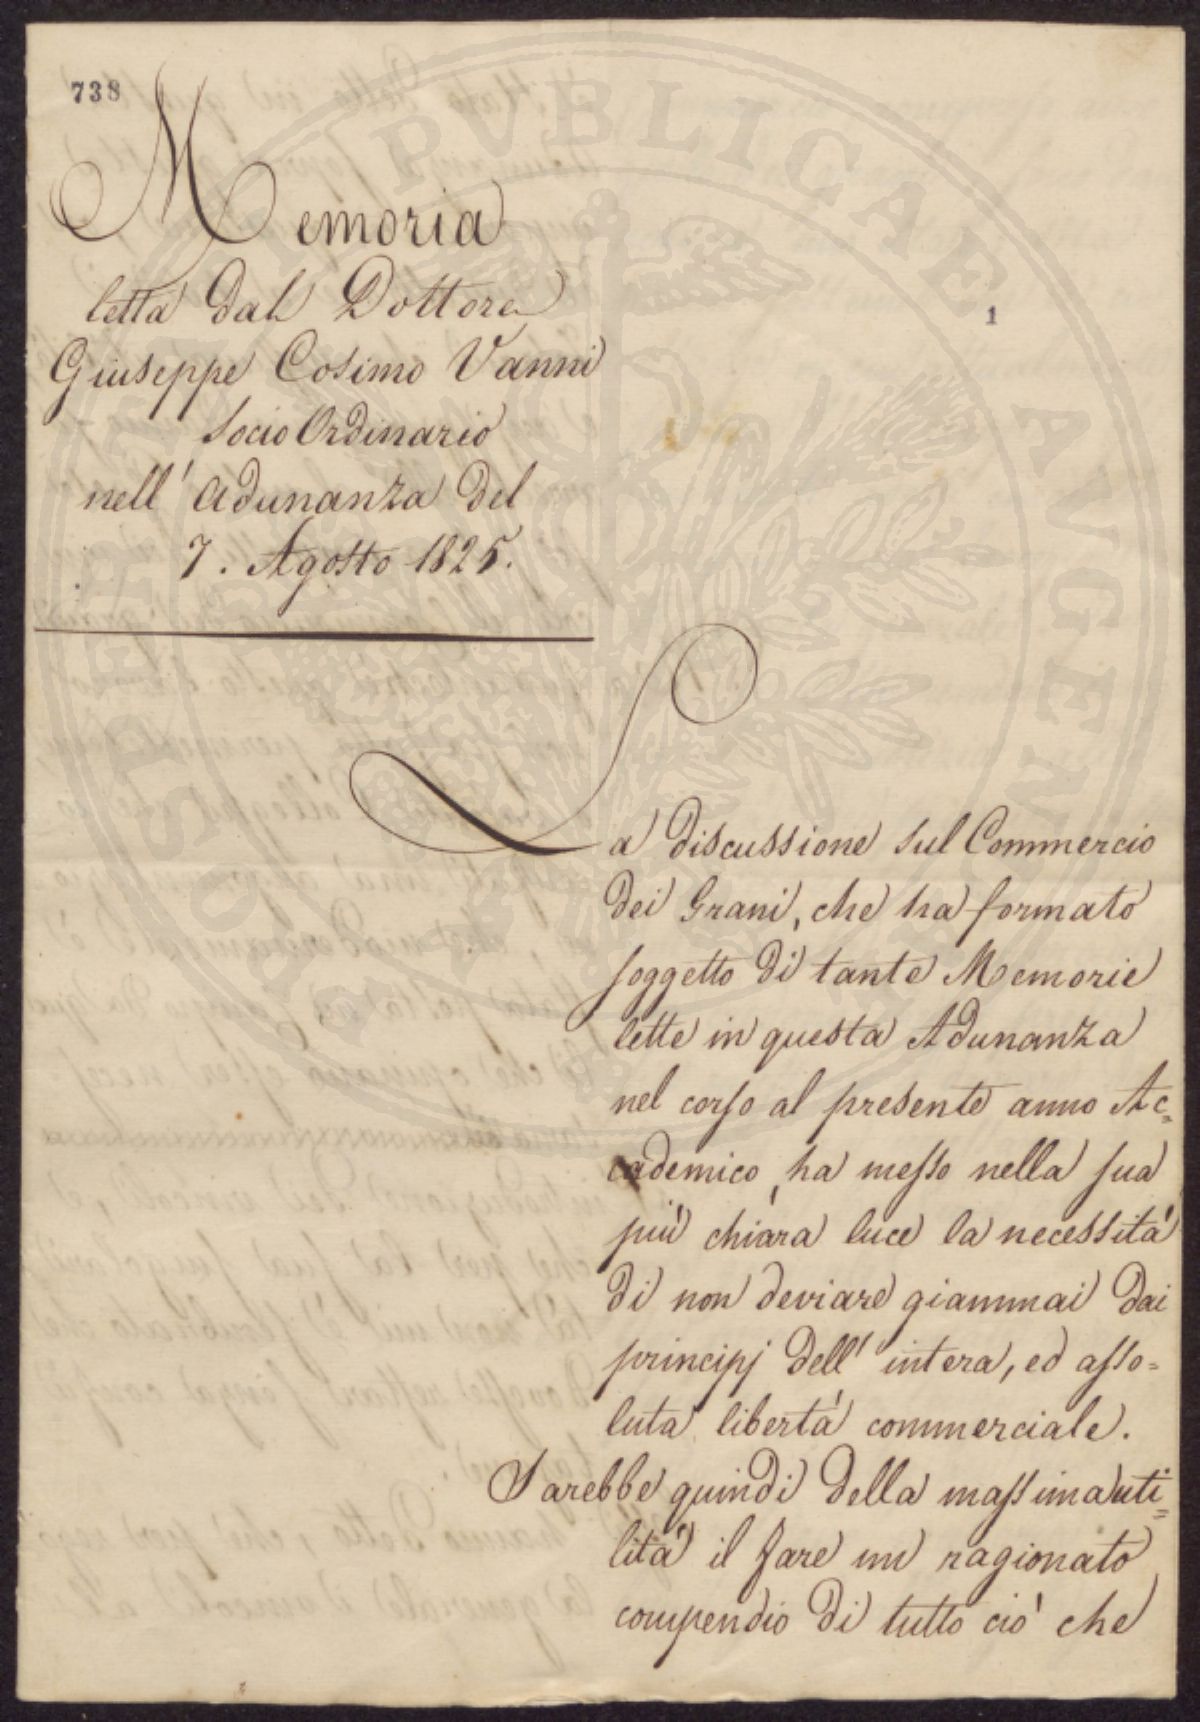 738
Memoria
letta dal Dottore
Giuseppe Cosimo Vanni
Socio Ordinario
nell' Adunanza del
7. Agosto 1825.
1
La discussione sul Commercio
dei Grani, che ha formato
soggetto di tante Memorie
lette in questa Adunanza
nel corso al presente anno Ac=
cademico, ha messo nella sua
più chiara luce la necessità
di non deviare giammai dai
principj dell' intera, ed asso=
luta libertà commerciale.
Sarebbe quindi della massima uti=
lità il fare un ragionato
compendio di tutto ciò che
PVBLICAE AVGEN